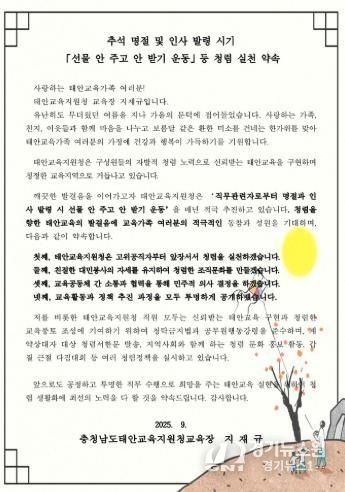 추석 명절 및 인사 발령 시기
「선물 안 주고 안 받기 운동」 등 청렴 실천 약속
사랑하는 태안교육가족 여러분!
태안교육지원청 교육장 지재규입니다.
유난히도 무더웠던 여름을 지나 가을의 문턱에 접어들었습니다. 사랑하는 가족,
친지, 이웃들과 함께 마음을 나누고 보름달 같은 환한 미소를 건네는 한가위를 맞아
태안교육가족 여러분의 가정에 건강과 행복이 가득하기를 기원합니다.
태안교육지원청은 구성원들의 자발적 청렴 노력으로 신뢰받는 태안교육을 구현하며
청정한 교육지역으로 거듭나고 있습니다.
깨끗한 발걸음을 이어가고자 태안교육지원청은 '직무관련자로부터 명절과 인
사 발령 시 선물 안 주고 안 받기 운동'을 매년 적극 추진하고 있습니다. 청렴을
향한 태안교육의 발걸음에 교육가족 여러분의 적극적인 동참과 성원을 기대하며,
다음과 같이 약속합니다.
첫째, 태안교육지원청은 고위공직자부터 앞장서서 청렴을 실천하겠습니다.
둘째, 친절한 대민봉사의 자세를 유지하여 청렴한 조직문화를 만들겠습니다.
셋째, 교육공동체 간 소통과 협력을 통해 민주적 의사 결정을 하겠습니다.
넷째, 교육활동과 정책 추진 과정을 모두 투명하게 공개하겠습니다.
저를 비롯한 태안교육지원청 직원 모두는 신뢰받는 태안교육 구현과 청렴한
교육풍토 조성에 기여하기 위하여 청탁금지법과 공무원행동강령을 준수하며, 계
약상대자 대상 청렴서한문 발송, 지역사회와 함께 하는 청렴 문화 홍보 활동, 갑
질 근절 다짐대회 등 여러 청렴정책을 실시하고 있습니다.
앞으로도 공정하고 투명한 직무 수행으로 희망을 주는 태안교육 실현을 위하여 청
렴 생활화에 최선의 노력을 다 할 것을 약속드립니다. 감사합니다.
2025. 9.
충청남도태안교육지원청교육장 지 재 규
경기뉴스원
GN1 경기뉴스1